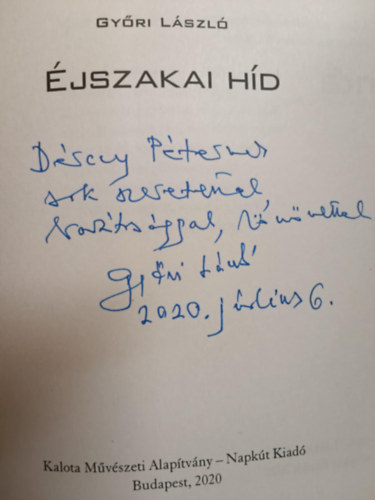 GYŐRI LÁSZLÓ
ÉJSZAKAI HÍD
Dérczy Péternek
sok szeretettel
barátsággal,
Győri László
2020. július 6.
Kalota Művészeti Alapítvány – Napkút Kiadó
Budapest, 2020